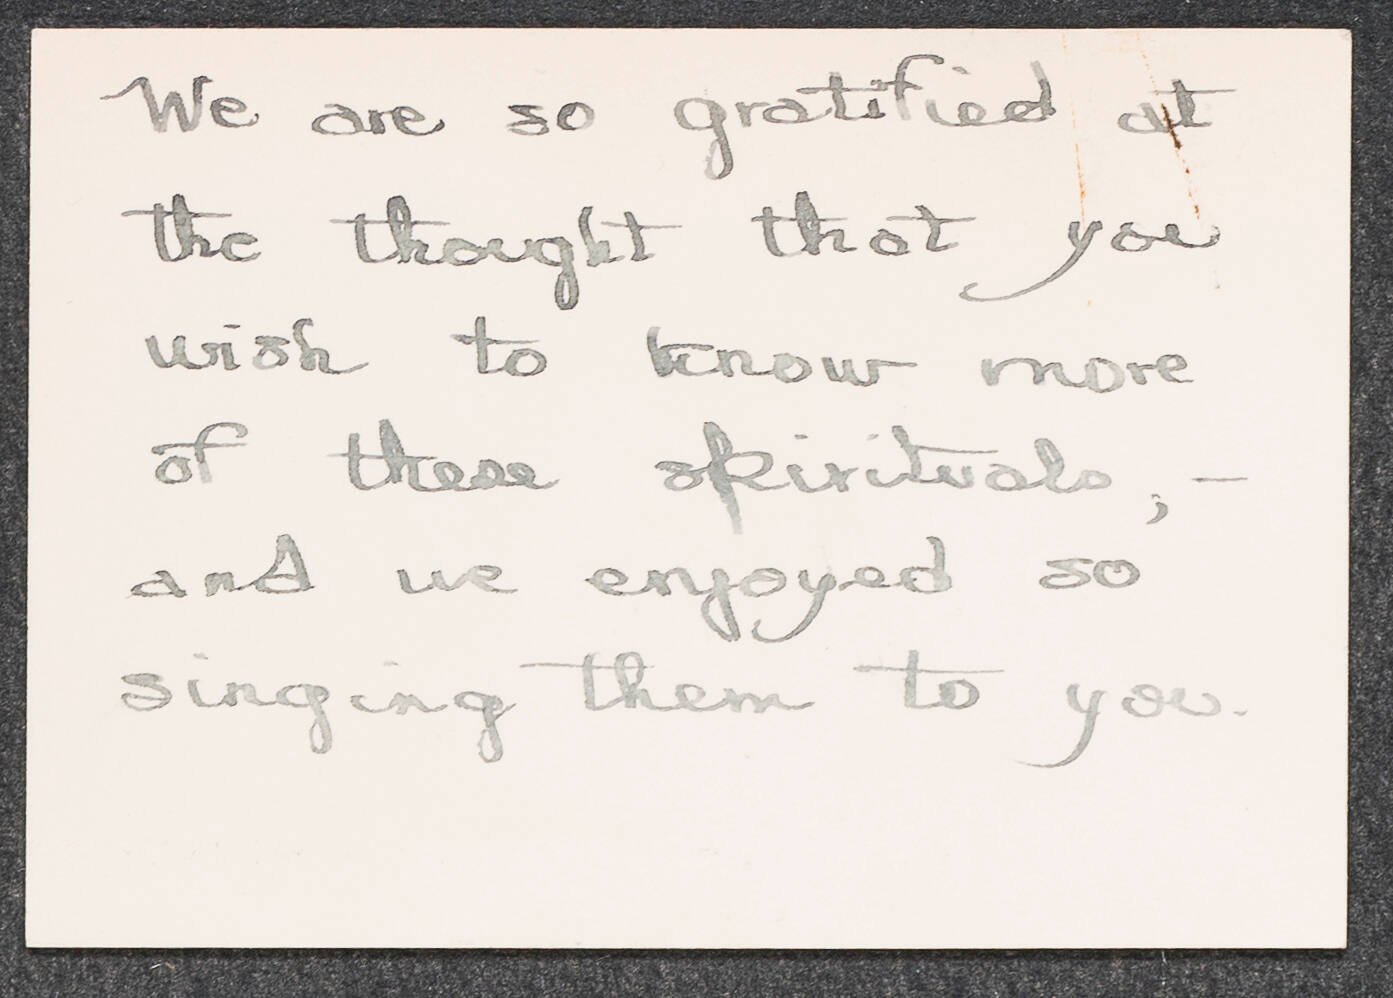 We are so gratified at
the thought that you
wish to know more
of these spirituals, –
and we enjoyed so
singing them to you.